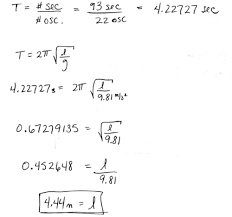 T = # sec / # osc. = 93 sec / 22 osc = 4.22727 sec
T = 2π √(l / g)
4.22727s = 2π √(l / 9.81 m/s²)
0.67279135 = √(l / 9.81)
0.452648 = l / 9.81
4.44m = l